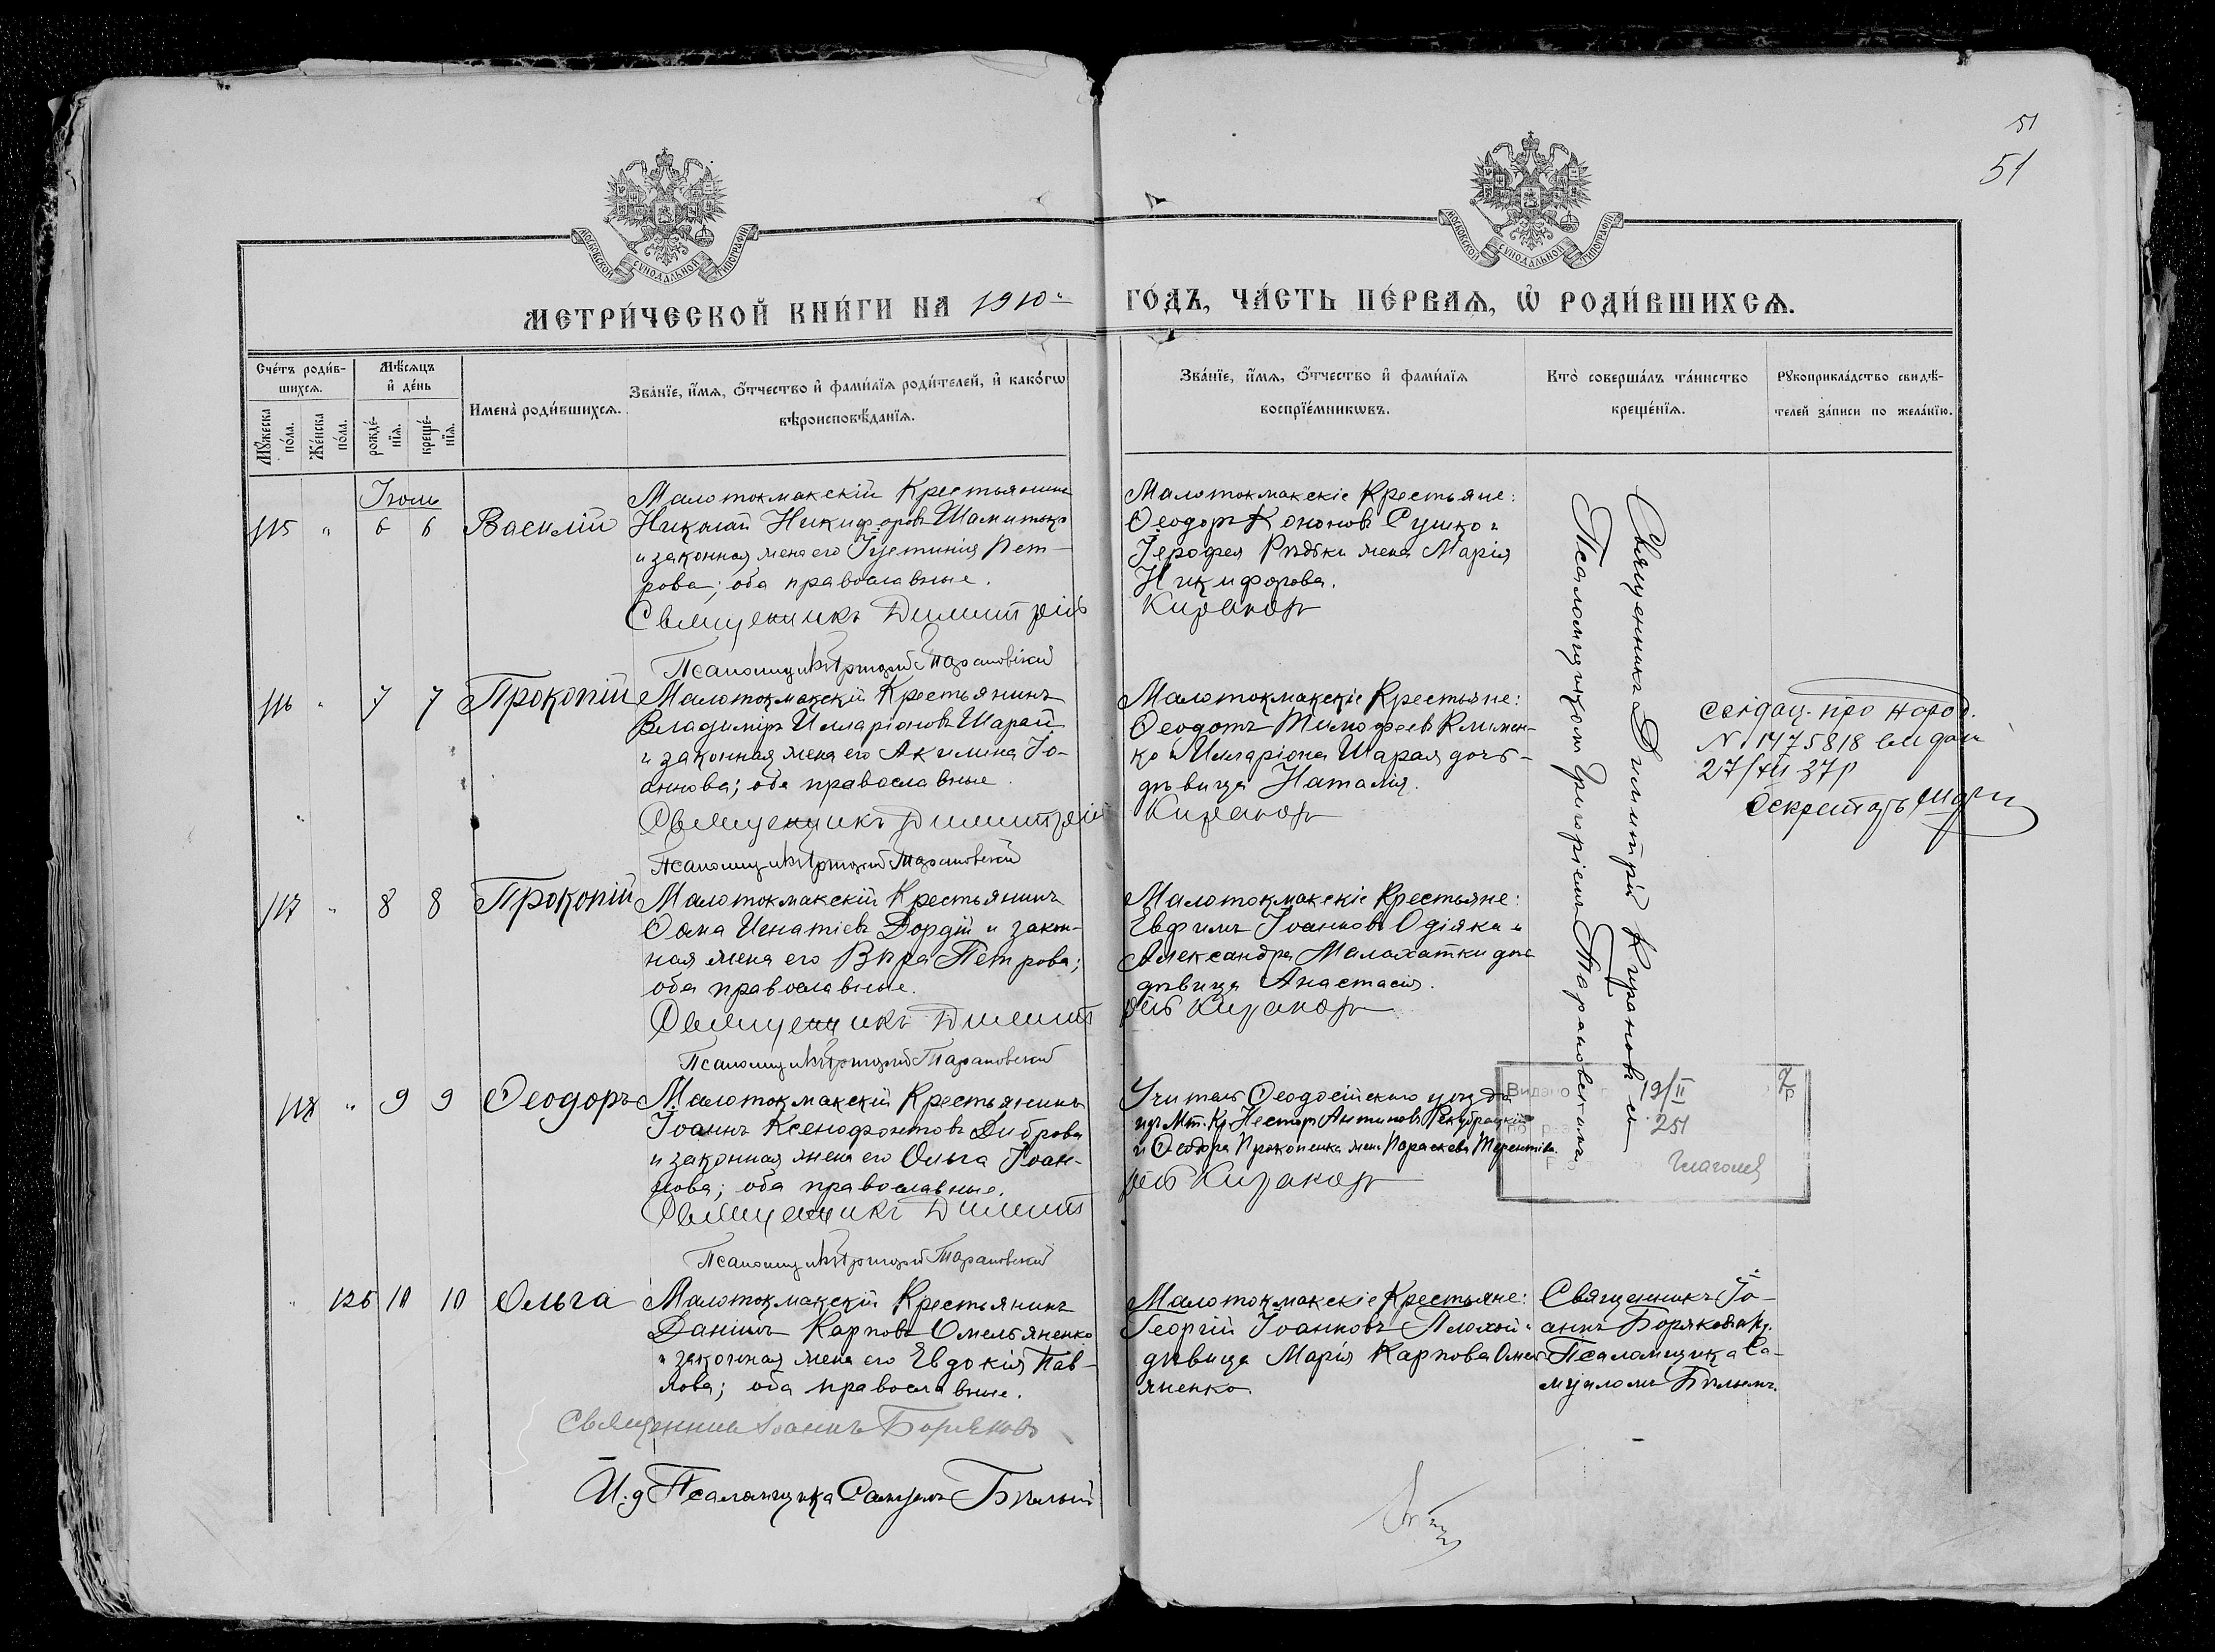 51
51
МОСКОВСКОЙ СѴНОДАЛЬНОЙ ТИПОГРАФІИ
МОСКОВСКОЙ СѴНОДАЛЬНОЙ ТИПОГРАФІИ
МЕТРИ́ЧЕСКОЙ КНИ́ГИ НА 1910 ГО́ДЪ, ЧА́СТЬ ПЕ́РВАѦ, Ѡ҆ РОДИ́ВШИХСѦ.
Сче́тъ роди́в-
шихсѧ.
Мꙋ́жеска
по́ла.
Же́нска
по́ла.
Мѣ́сѧцъ
и҆ де́нь
рожде́-
нїѧ.
креще́-
нїѧ.
Имена̀ роди́вшихсѧ.
Зва́нїе, и҆́мѧ, ѻ҆́тчество и҆ фами́лїѧ роди́телей, и҆ како́гѡ
вѣроисповѣ́данїѧ.
Зва́нїе, и҆́мѧ, ѻ҆́тчество и҆ фами́лїѧ
воспрїе́мникѡвъ.
Кто̀ соверша́лъ та́инство
креще́нїѧ.
Рꙋкоприкла́дство свидѣ́-
телей за́писи по жела́нїю.
Іюль
115 " 6 6 Василій
Малотокмакскій Крестьянинъ
Николай Никифоровъ
и законная жена его Іустинія Пет-
рова; оба православные.
Священникъ Димитрій Кирановъ
Псаломщикъ Григорій Тарановскій
Малотокмакскіе Крестьяне:
Ѳеодоръ Кононовъ Сушко и
Іерофея Рѣдьки жена Марія
Никифорова.
Священникъ Димитрій Кирановъ съ
Псаломщикомъ Григоріемъ Тарановскимъ
116 " 7 7 Прокопій
Малотокмакскій Крестьянинъ
Владиміръ Илларіоновъ Шарай
и законная жена его Акилина Іо-
аннова; оба православные.
Священникъ Димитрій Кирановъ
Псаломщикъ Григорій Тарановскій
Малотокмакскіе Крестьяне:
Ѳеодотъ Тимофеевъ Климен-
ко и Илларіона Шарая дочь-
дѣвица Наталія.
свідоц. про народ.
N 1475818 видан
27/XII 37р
Секретарь
117 " 8 8 Прокопій
Малотокмакскій Крестьянинъ
Ѳома Игнатіевъ Дордій и закон-
ная жена его Вѣра Петрова;
оба православные.
Священникъ Димитрій Кирановъ
Псаломщикъ Григорій Тарановскій
Малотокмакскіе Крестьяне:
Евфимъ Іоанновъ Одіяка и
Александра Малахатки дочь
дѣвица Анастасія.
118 " 9 9 Ѳеодоръ
Малотокмакскій Крестьянинъ
Іоаннъ Ксенофонтовъ Диброва
и законная жена его Ольга Іоан-
нова; оба православные.
Священникъ Димитрій Кирановъ
Псаломщикъ Григорій Тарановскій
Учитель Ѳеодосійскаго уѣзда
изъ Мт. Кр. Несторъ Антиповъ
и Ѳеодора Прокопенка жен. Параскева Терентіева.
Видано
19/II
251
" 126 10 10 Ольга
Малотокмакскій Крестьянинъ
Даніилъ Карповъ Омельяненко
и законная жена его Евдокія Пав-
лова; оба православные.
Священникъ Іоаннъ Боряковъ
И. д. Псаломщика Самуилъ Бѣлый
Малотокмакскіе Крестьяне:
Георгій Іоанновъ Плохой и
дѣвица Марія Карпова Омель-
яненко.
Священникъ Іо-
аннъ Боряковъ
Псаломщика Са-
муиломъ Бѣлымъ.